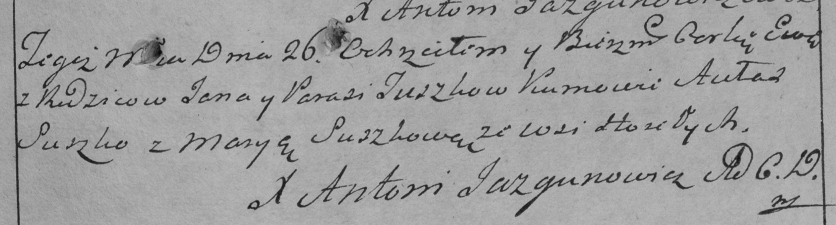 X Antoni Jazgunowicz
Tegoż Mca Dnia 26. Ochrzciłem y Bierzm Corkę Ewę
z Rodzicow Jana y Parasi Suszkow Kumowie Autas
Suszko z Maryą Suszkową ze wsi
X Antoni Jazgunowicz AD C. D.